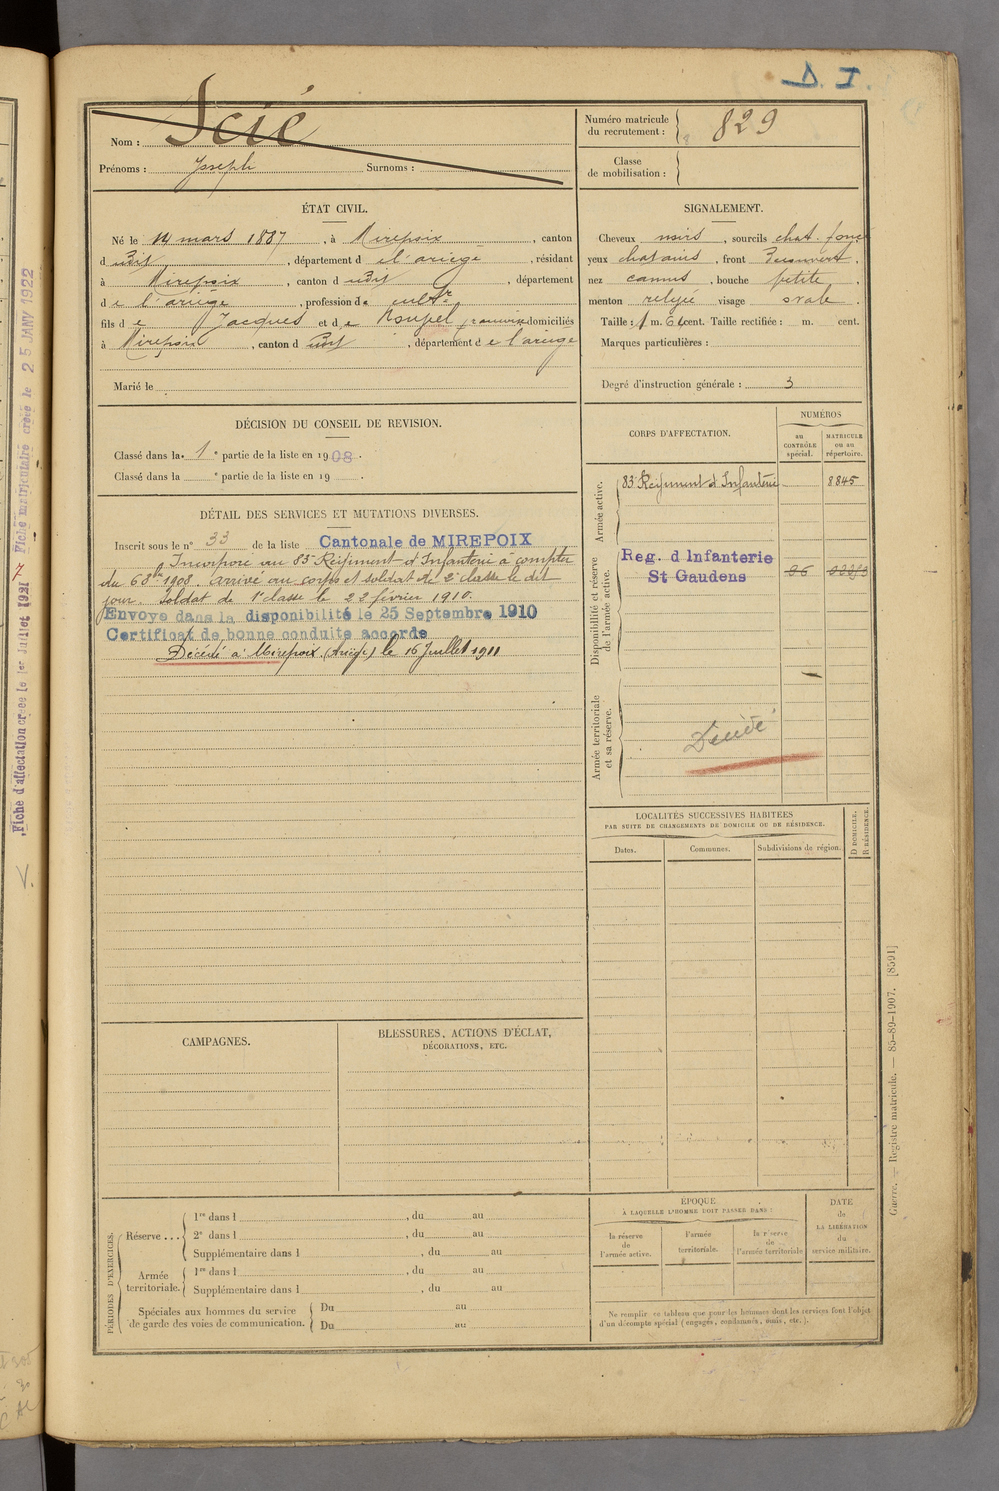 D. I.
Nom : Scié
Prénoms : Joseph Surnoms :
Numéro matricule
du recrutement : 829
Classe
de mobilisation :
ÉTAT CIVIL.
Né le 14 mars 1887, à Mirepoix, canton
d udit, département d e l'ariège, résidant
à Mirepoix, canton d udit, département
d e l'ariège, profession de cultr
fils d e Jacques et d e Roupel domiciliés
à Mirepoix, canton d udit, département d e l'ariège
Marié le
SIGNALEMENT.
Cheveux noirs, sourcils chat. foncé
yeux chatains, front découvert,
nez camus, bouche petite,
menton relevé visage ovale.
Taille : 1 m. 64 cent. Taille rectifiée : m. cent.
Marques particulières :
Degré d'instruction générale : 3
DÉCISION DU CONSEIL DE REVISION.
Classé dans la 1e partie de la liste en 1908.
Classé dans la e partie de la liste en 19 .
DÉTAIL DES SERVICES ET MUTATIONS DIVERSES.
Inscrit sous le n° 33 de la liste Cantonale de MIREPOIX
Incorporé au 83e Régiment d'Infanterie à compter
du 6 8bre 1908. Arrivé au corps et soldat de 2e classe le dit
jour. Soldat de 1e classe le 22 février 1910.
Envoyé dans la disponibilité le 25 Septembre 1910
Certificat de bonne conduite accordé
Décédé à Mirepoix (Ariège) le 16 Juillet 1911
CORPS D'AFFECTATION.
NUMÉROS
au
CONTRÔLE
spécial.
MATRICULE
ou au
répertoire.
Armée active.
83e Régiment d'Infanterie 8845
Disponibilité et réserve
de l'armée active.
Reg. d Infanterie
St Gaudens
Armée territoriale
et sa réserve.
Décédé
LOCALITÉS SUCCESSIVES HABITÉES
PAR SUITE DE CHANGEMENTS DE DOMICILE OU DE RÉSIDENCE.
Dates. Communes. Subdivisions de région.
D DOMICILE.
R RÉSIDENCE.
CAMPAGNES.
BLESSURES, ACTIONS D'ÉCLAT,
DÉCORATIONS, ETC.
PÉRIODES D'EXERCICES.
Réserve ...
1re dans l , du au
2e dans l , du au
Supplémentaire dans l , du au
Armée
territoriale.
1re dans l , du au
Supplémentaire dans l , du au
Spéciales aux hommes du service
de garde des voies de communication.
Du au
Du au
ÉPOQUE
À LAQUELLE L'HOMME DOIT PASSER DANS :
la réserve
de
l'armée active.
l'armée
territoriale.
la réserve
de
l'armée territoriale
DATE
de
LA LIBÉRATION
du
service militaire.
Ne remplir ce tableau que pour les hommes dont les services font l'objet
d'un décompte spécial (engagés, condamnés, omis, etc.).
Guerre. — Registre matricule. — 85-89-1907. [8591]
Fiche d'affectation créée le 1er Juillet 1921
Fiche matriculaire créée le 25 JANV 1922